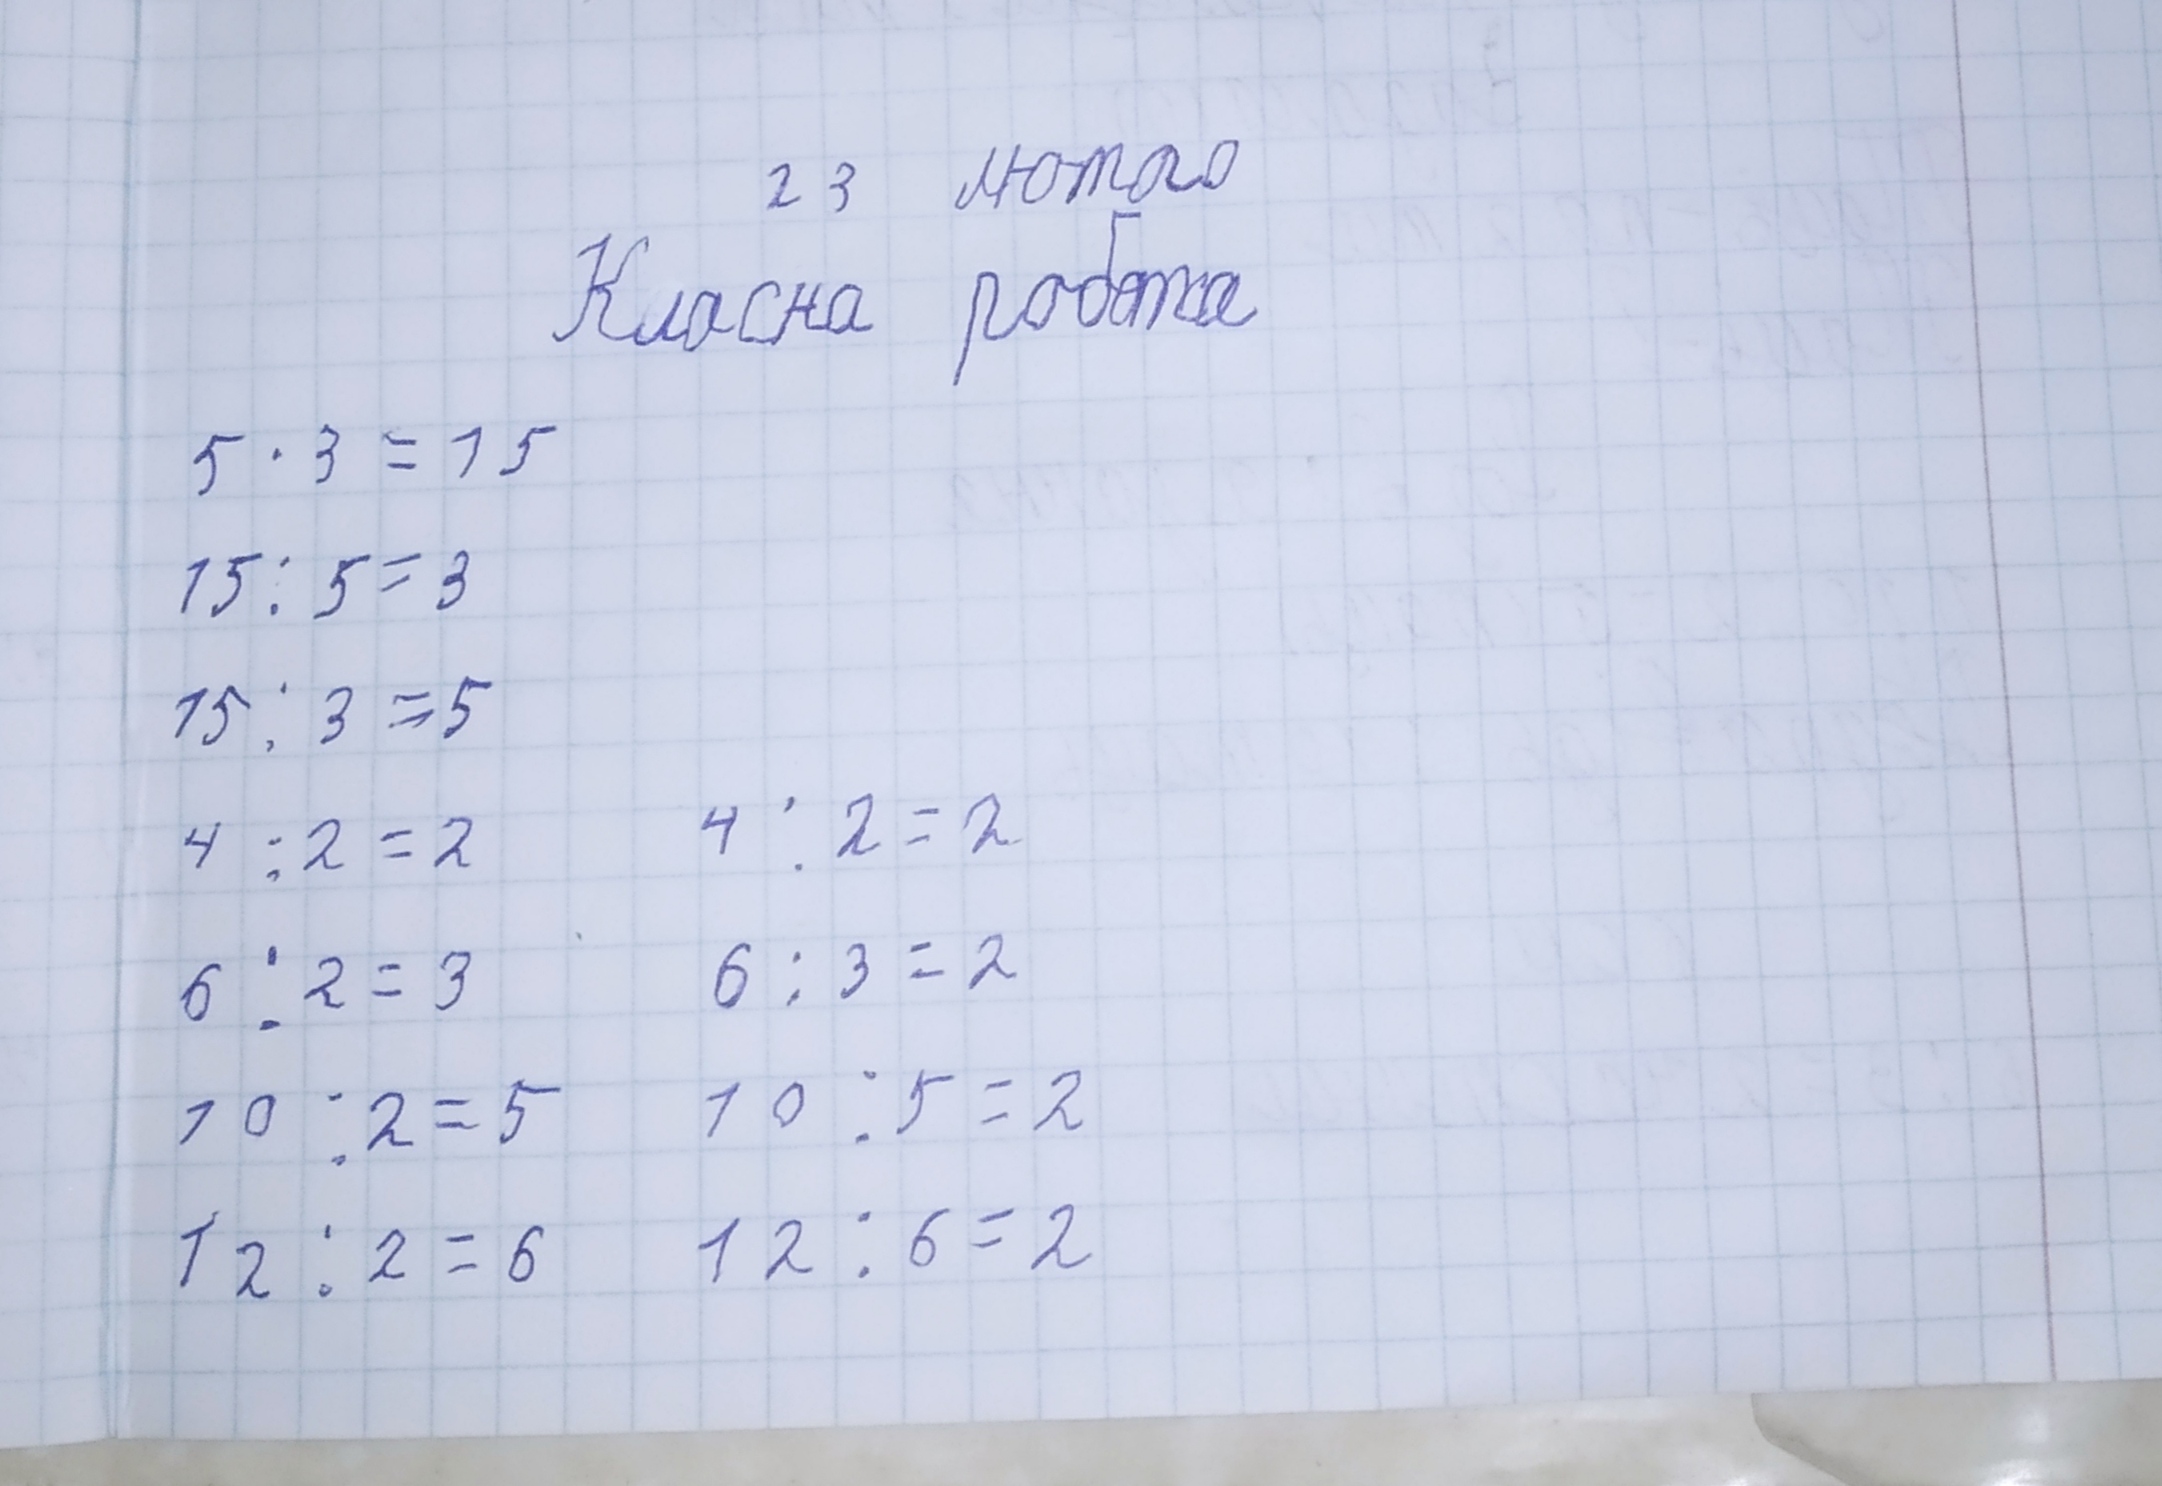 23 лютого
Класна робота
5 · 3 = 15
15 : 5 = 3
15 : 3 = 5
4 : 2 = 2 4 : 2 = 2
6 : 2 = 3 6 : 3 = 2
10 : 2 = 5 10 : 5 = 2
12 : 2 = 6 12 : 6 = 2